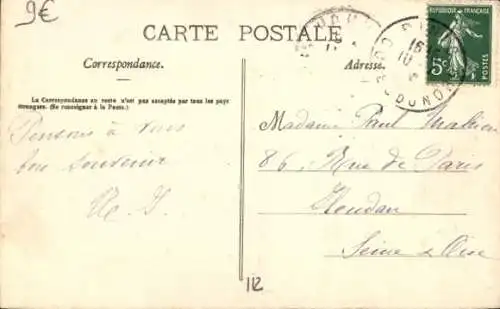 9€
CARTE POSTALE
REPUBLIQUE FRANÇAISE
5c
POSTES
Correspondance.
Adresse.
La Correspondance au recto n'est pas acceptée par tous les pays
étrangers. (Se renseigner à la Poste.)
Pensons à vous
bon souvenir
Madame Paul
86, Rue de Paris
Houdan
Seine & Oise
112